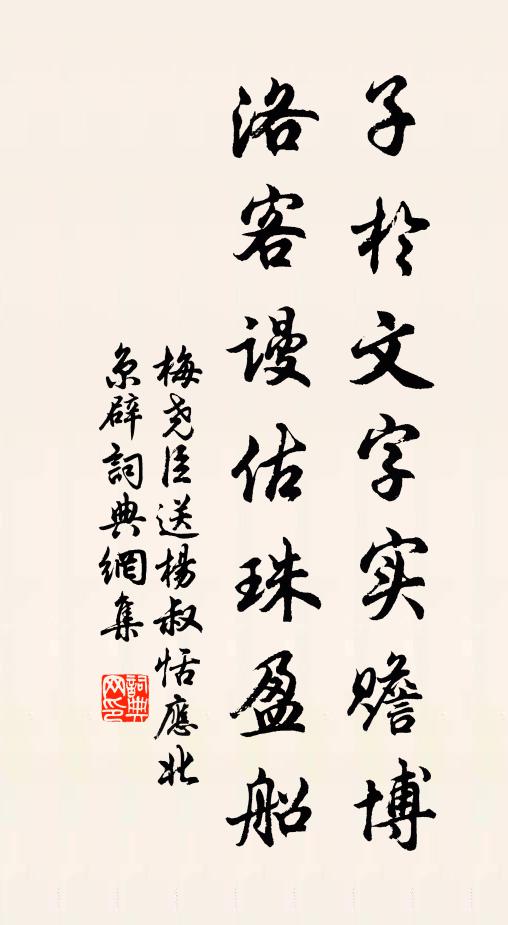 子於文字实赡博
洛客谩估珠盈船
梅尧臣送楊叔恬應北
京辟詞典網集
詞典网印